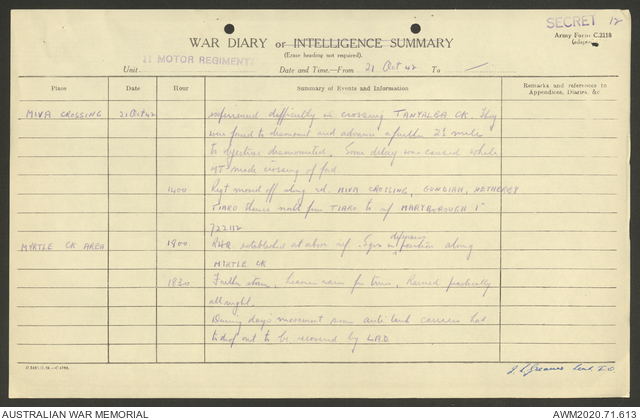 SECRET 12
Army Form C.2118
(adapted)
WAR DIARY or INTELLIGENCE SUMMARY
(Erase heading not required).
11 MOTOR REGIMENT
Unit
Date and Time—From 21 Oct 42 To
Place Date Hour Summary of Events and Information Remarks and references to
Appendices, Diaries, &c
MIVA CROSSING 21 Oct 42 experienced difficulty in crossing TANYALBA CK. They
were forced to dismount and advance a further 2½ miles
to objective dismounted. Some delay was caused while
MT made crossing of ford
1400 Regt moved off along rd. MIVA CROSSING, GUNDIAH, NETHERBY
TIARO thence north from TIARO to MARYBOROUGH 1"
722112
MYRTLE CK AREA 1700 RHQ established at above Sqns in defensive position along
MYRTLE CK
1830 Further storm, heavier rain for time. Rained practically
all night.
During day's movement some anti tank carriers had
to drop out to be recovered by LAD.
Lieut I O
AUSTRALIAN WAR MEMORIAL AWM2020.71.613